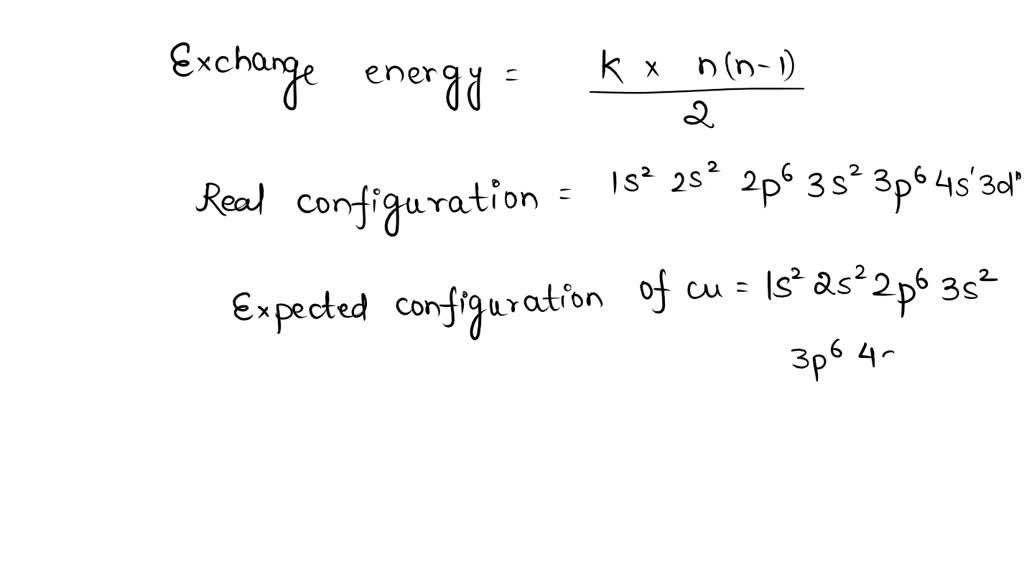 Exchange energy = k × n(n-1) / 2
Real configuration = 1s² 2s² 2p⁶ 3s² 3p⁶ 4s¹ 3d¹⁰
Expected configuration of cu = 1s² 2s² 2p⁶ 3s²
3p⁶ 4